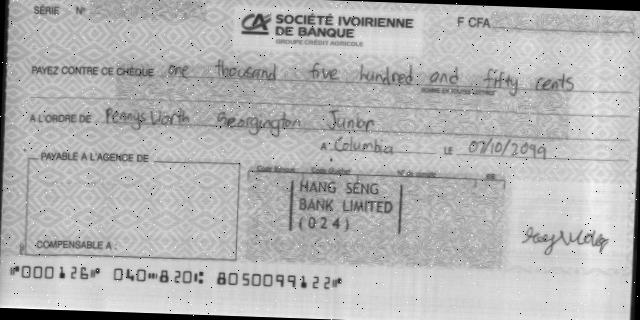 SÉRIE N°
CA SOCIÉTÉ IVOIRIENNE
DE BANQUE
GROUPE CRÉDIT AGRICOLE
F CFA
PAYEZ CONTRE CE CHÈQUE one thousand five hundred and fifty cents
A L'ORDRE DE Pennysworth Georgington Junior
A Columbia LE 07/10/2099
PAYABLE A L'AGENCE DE
HANG SENG
BANK LIMITED
(024)
COMPENSABLE A :
⑈000126⑈ 040⑉820⑆ 8050099122⑈